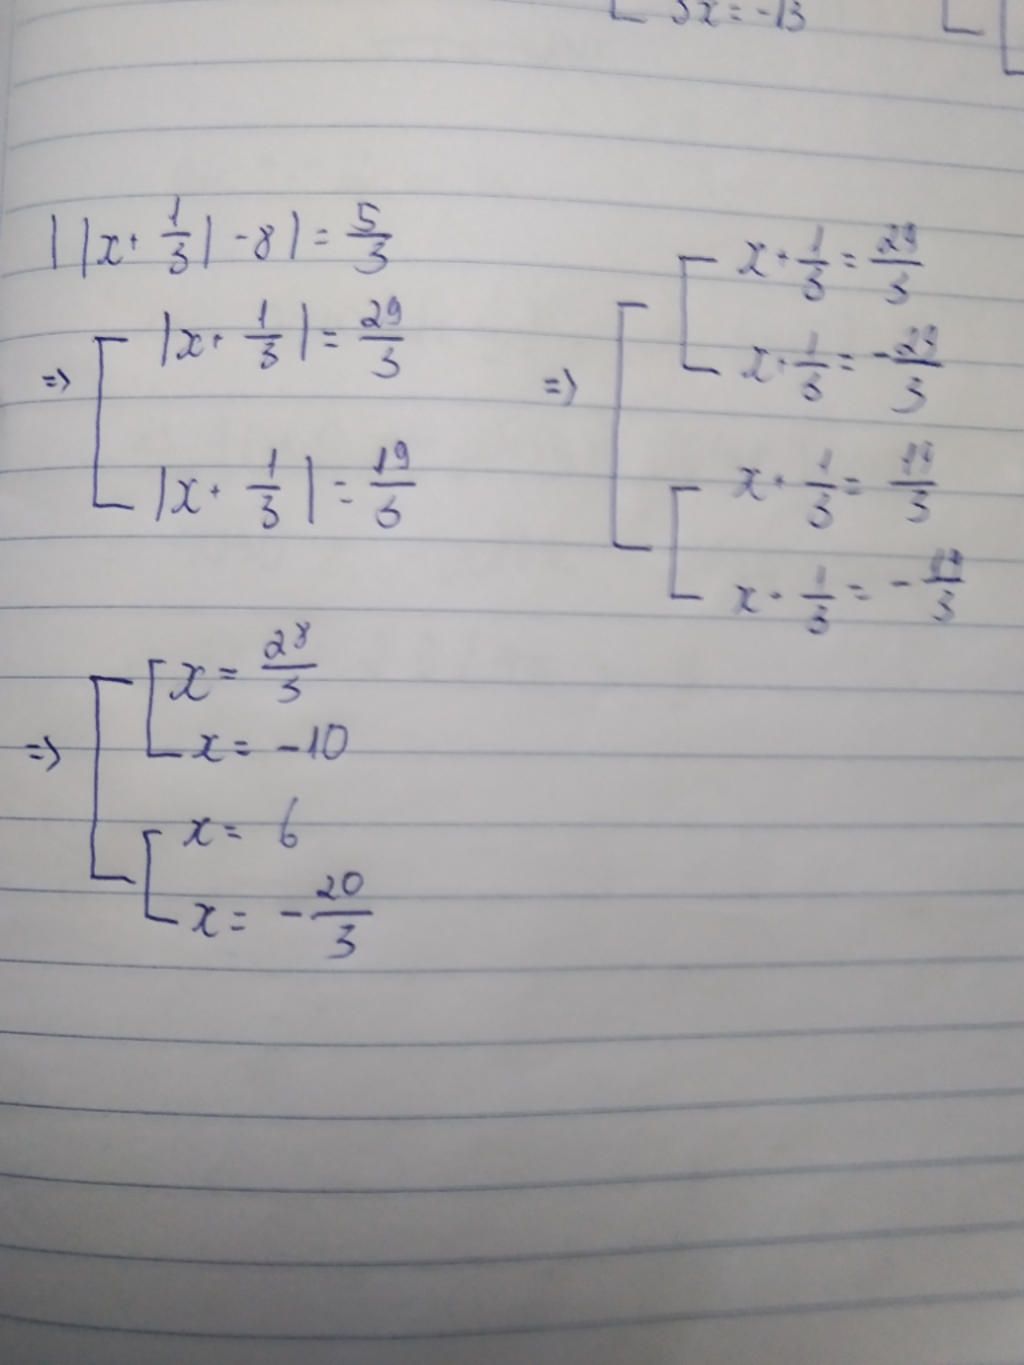 3x = -13
| |x + 1/3| - 8 | = 5/3
=> [ |x + 1/3| = 29/3
|x + 1/3| = 19/3
=> [ [ x + 1/3 = 29/3
x + 1/3 = -29/3
[ x + 1/3 = 19/3
x + 1/3 = -19/3
=> [ [ x = 28/3
x = -10
[ x = 6
x = -20/3